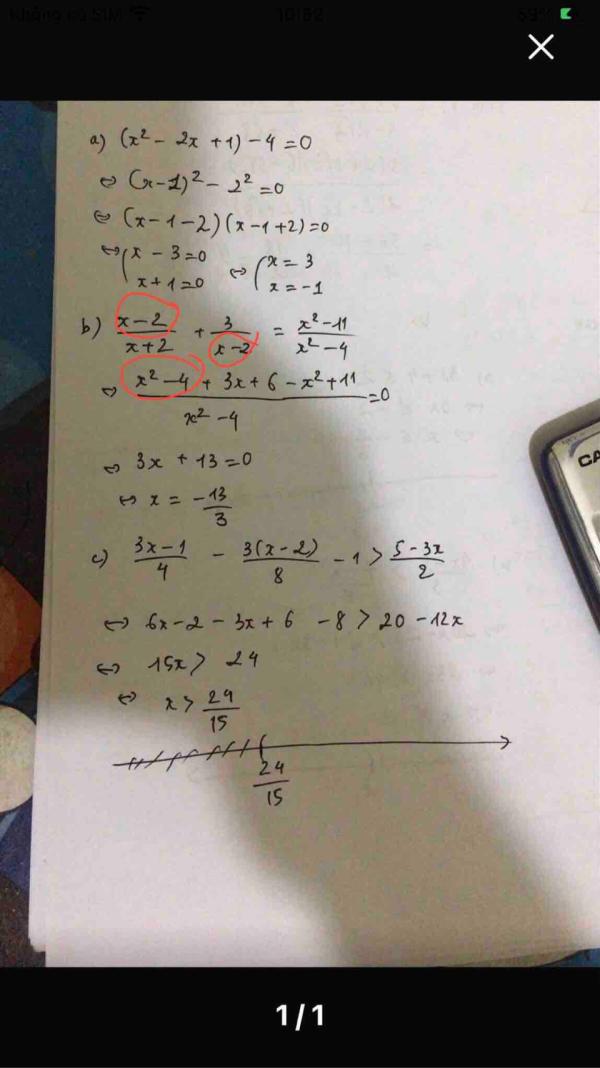 Không có SIM 10:52 59%
a) (x² - 2x + 1) - 4 = 0
⇔ (x-1)² - 2² = 0
⇔ (x - 1 - 2) (x - 1 + 2) = 0
⇔ [x - 3 = 0 ⇔ [x = 3
x + 1 = 0 x = -1
b) (x-2)/(x+2) + 3/(x-2) = (x²-11)/(x²-4)
⇔ (x²-4 + 3x + 6 - x² + 11)/(x²-4) = 0
⇔ 3x + 13 = 0
⇔ x = -13/3
c) (3x-1)/4 - 3(x-2)/8 - 1 > (5-3x)/2
⇔ 6x - 2 - 3x + 6 - 8 > 20 - 12x
⇔ 15x > 24
⇔ x > 24/15
24/15
CA
1/1